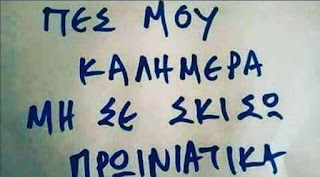 ΠΕΣ ΜΟΥ
ΚΑΛΗΜΕΡΑ
ΜΗ ΣΕ ΣΚΙΣΩ
ΠΡΩΙΝΙΑΤΙΚΑ